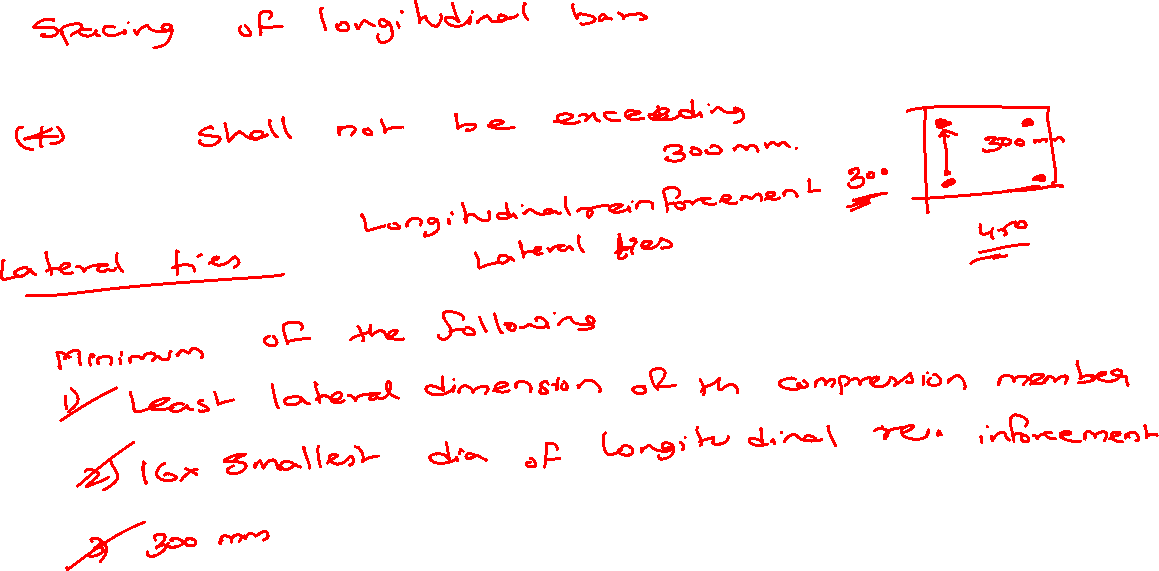 Spacing of longitudinal bars
(*) shall not be exceeding
300 mm.
300 mm
300
450
Longitudinal reinforcement
Lateral ties
Lateral ties
Minimum of the following
1) Least lateral dimension of th compression member
2) 16x smallest dia of longitudinal re. inforcement
3) 300 mm